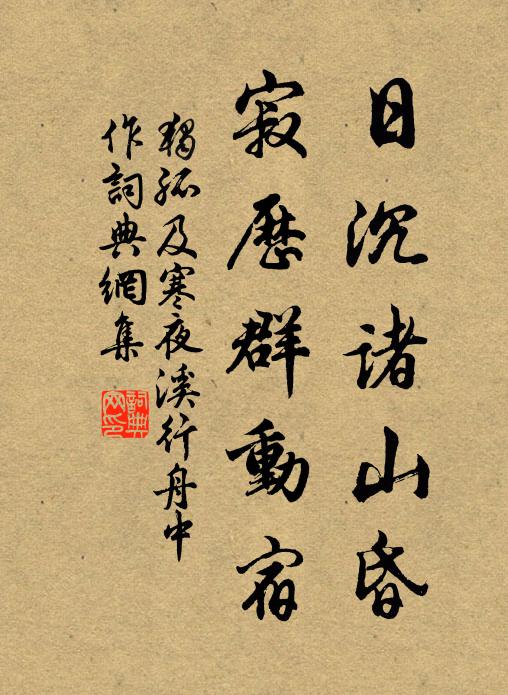 日沉諸山昏
寂歷群動宿
獨孤及寒夜溪行舟中
作詞典網集
詞典
网印